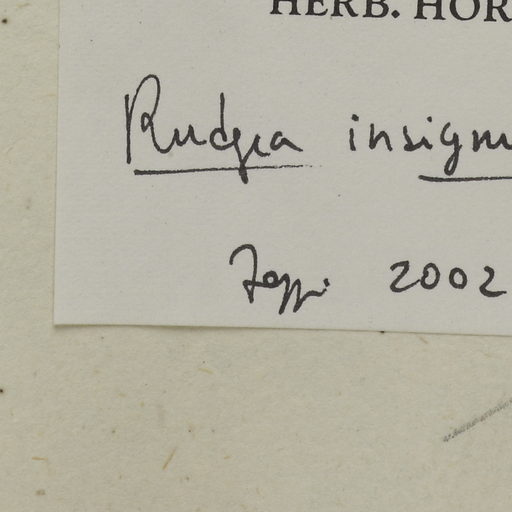 HERB. HOR
Rudgea insignı
Zappi 2002